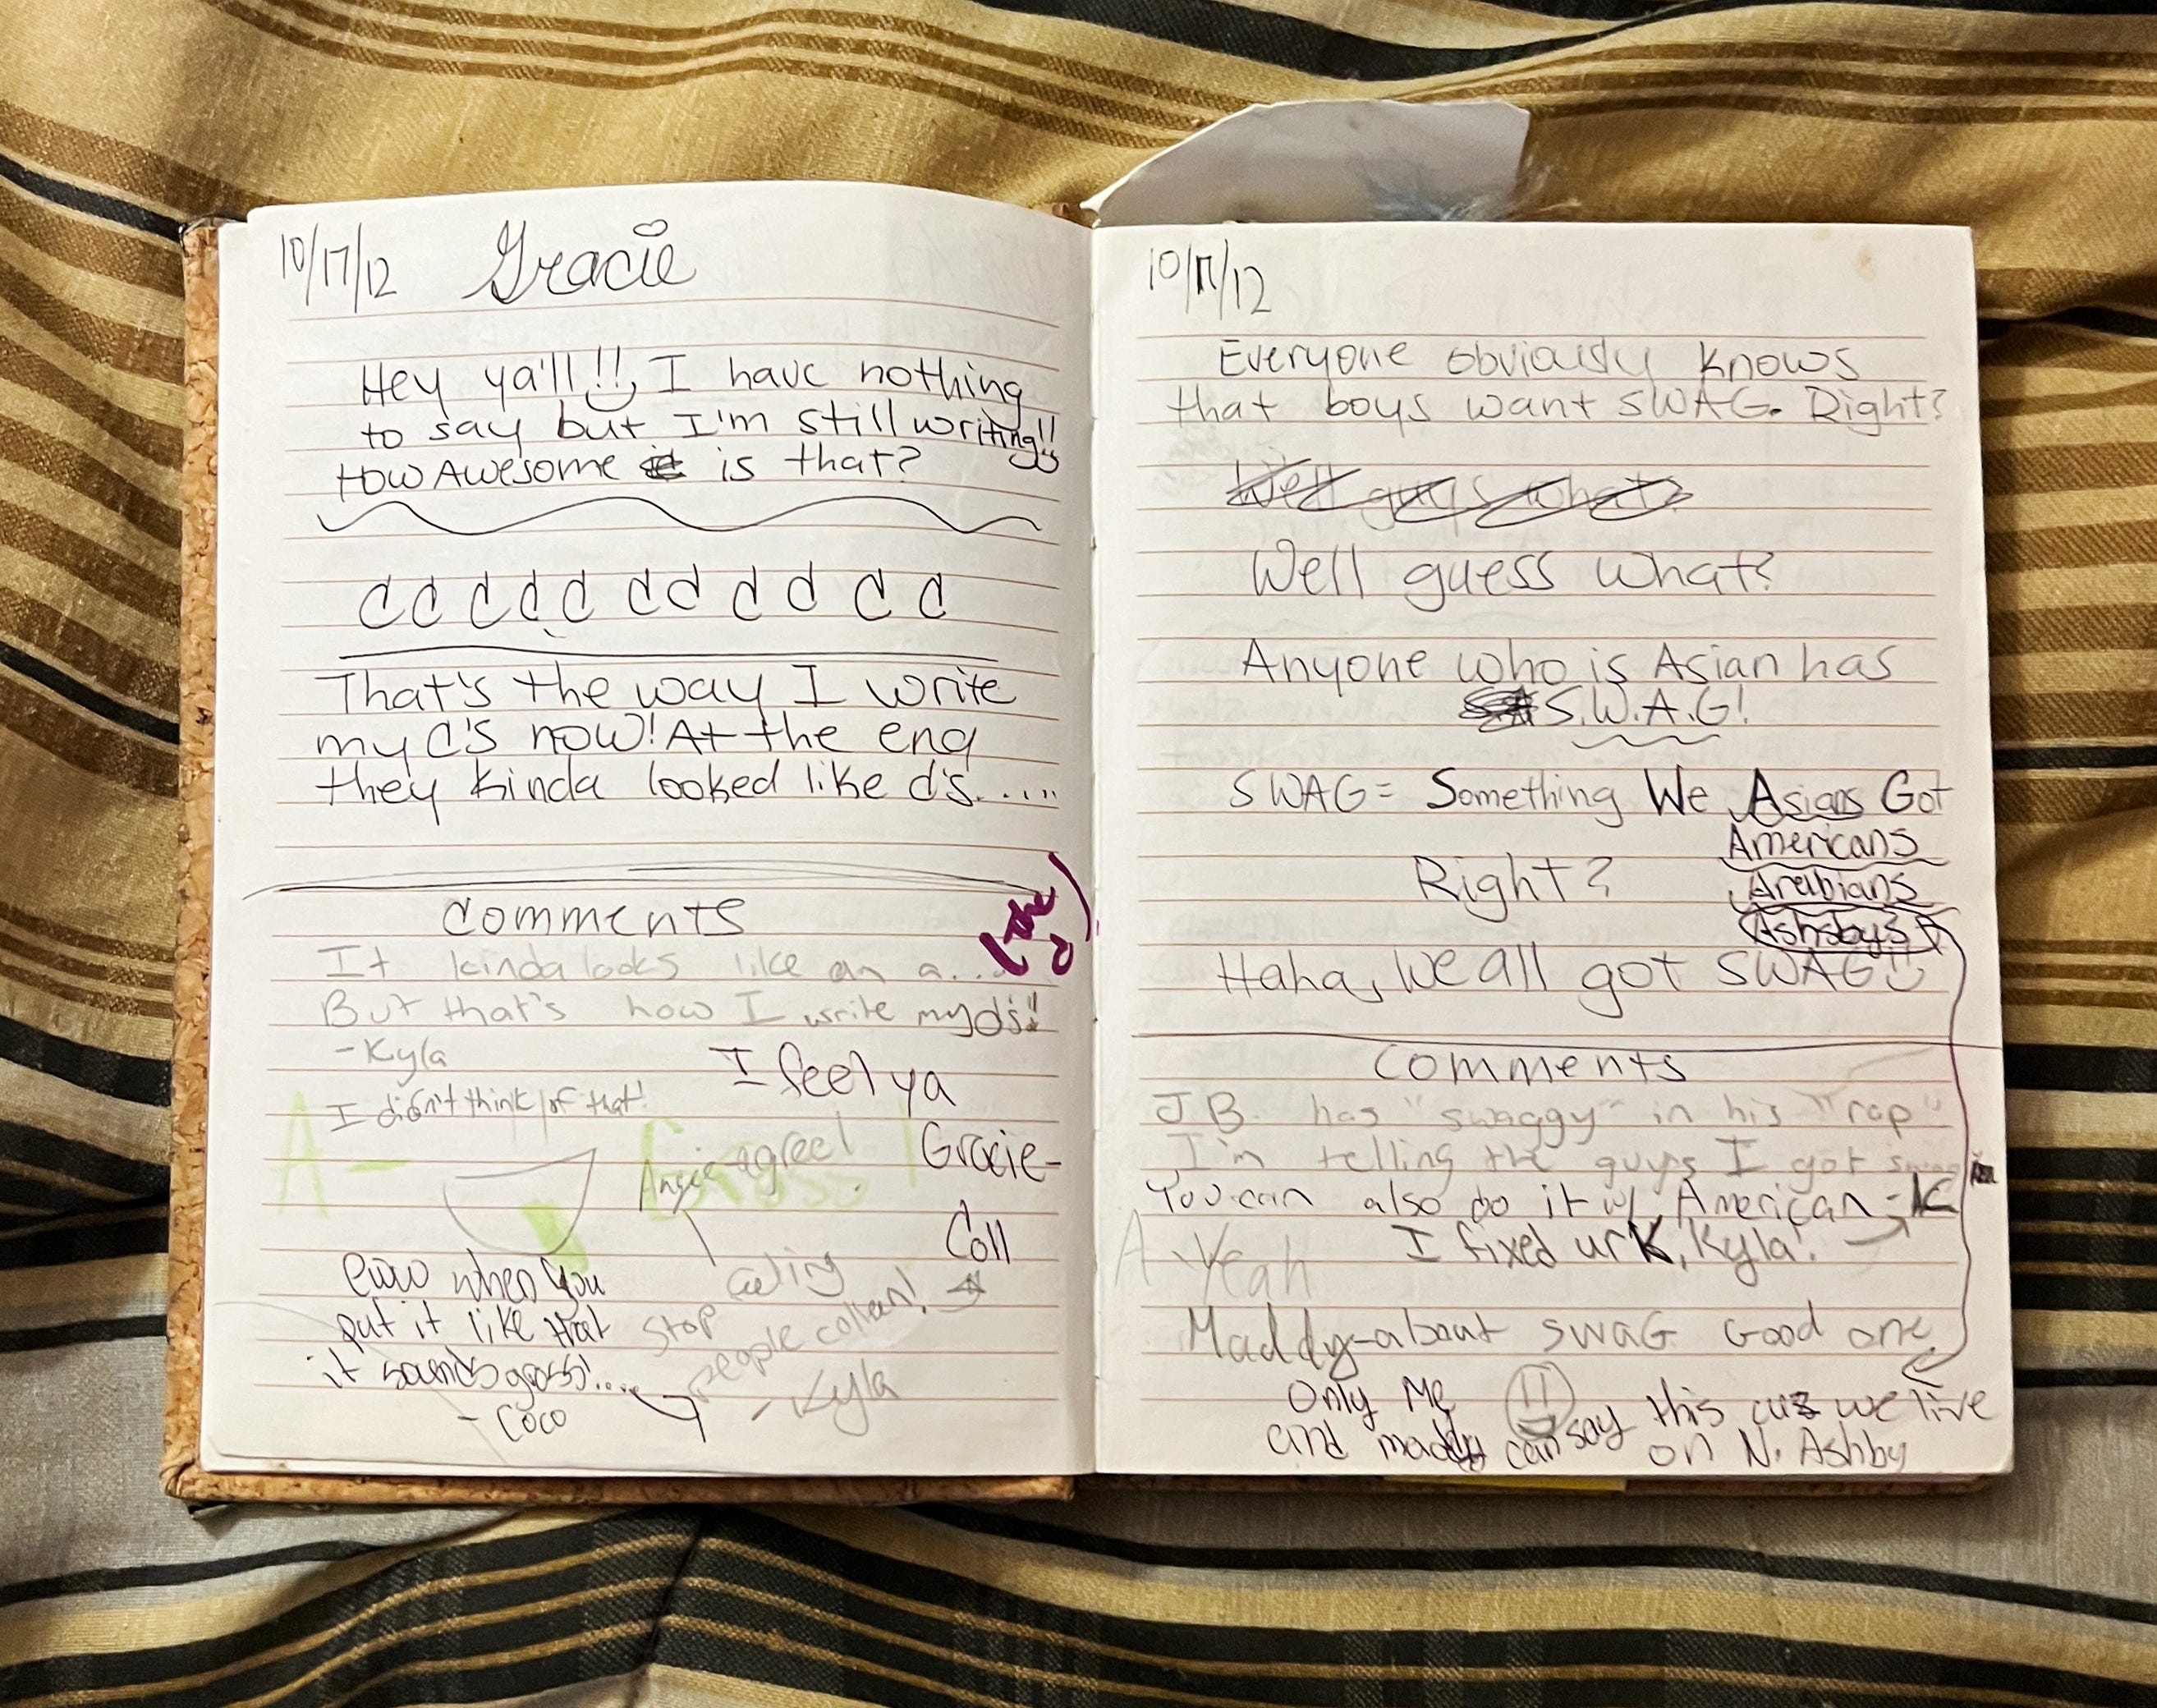 10/17/12 Gracie
Hey ya'll!! I have nothing
to say but I'm still writing!!
How Awesome is that?
c c c c c c c c c c c
That's the way I write
my c's now! At the end
they kinda looked like d's.....
comments
(the
d)
It kinda looks like an a...
But that's how I write my d's!!
-Kyla
I feel ya
I didn't think of that!
Gracie-
Coll
A-
Angie-agree!
eww when you
put it like that
it sounds gross!....
- Coco
Stop calling
people collen!
- Kyla
10/17/12
Everyone obviously knows
that boys want SWAG. Right?
Well guys what?
Well guess what?
Anyone who is Asian has
S.W.A.G!
SWAG = Something We Asians Got
Americans
Arabians
Ashsbys
Right?
Haha, We all got SWAG!!
Comments
J.B. has "swaggy" in his "rap"
I'm telling the guys I got
You can also do it w/ American -K
I fixed ur K, Kyla!
A Yeah
Maddy-about SWAG Good one
Only Me
and maddy can say this cuz we live
on N. Ashby